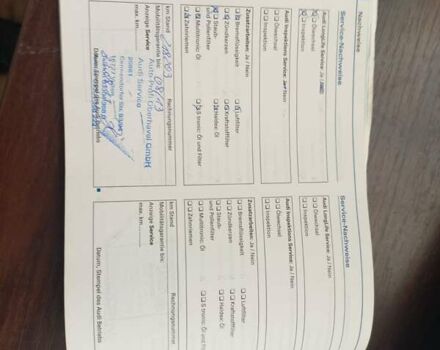 Nachweise
Service-Nachweise
Audi LongLife Service: Ja / Nein
Ölwechsel
Inspektion
Audi Inspektions Service: Ja / Nein
Ölwechsel
Inspektion
Zusatzarbeiten: Ja / Nein
Bremsflüssigkeit
Luftfilter
Zündkerzen
Kraftstofffilter
Staub-
und Pollenfilter
Haldex: Öl
Multitronic: Öl
S tronic: Öl und Filter
Zahnriemen
km Stand
Rechnungsnummer
Mobilitätsgarantie bis: 08/13
Anzeige Service
max. km
Auto-Profi Oberhavel GmbH
Audi Service
Datum, Stempel des Audi Betriebs
Service-Nachweise
Audi LongLife Service: Ja / Nein
Ölwechsel
Inspektion
Audi Inspektions Service: Ja / Nein
Ölwechsel
Inspektion
Zusatzarbeiten: Ja / Nein
Bremsflüssigkeit
Luftfilter
Zündkerzen
Kraftstofffilter
Staub-
und Pollenfilter
Haldex: Öl
Multitronic: Öl
S tronic: Öl und Filter
Zahnriemen
km Stand
Rechnungsnummer
Mobilitätsgarantie bis:
Anzeige Service
max. km
Datum, Stempel des Audi Betriebs